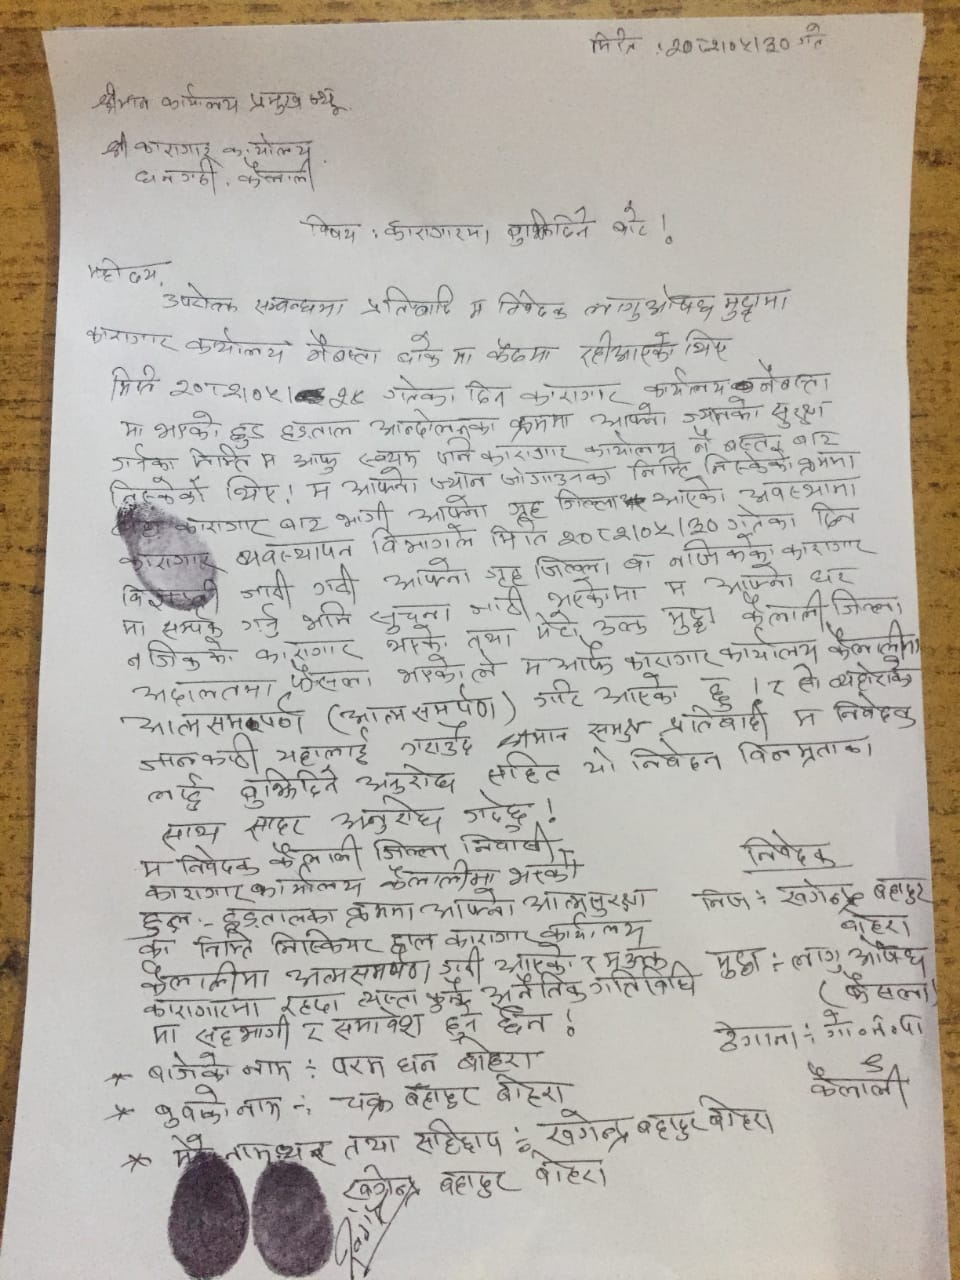 मिति : २०८२।०५।३० गते
श्रीमान कार्यालय प्रमुख ज्यू.
श्री कारागार कार्यालय
धनगढी, कैलाली
विषय : कारागारमा बुझिदिने बारे !
महोदय,
उपरोक्त सम्बन्धमा प्रतिबादि म निवेदक लागुऔषध मुद्दामा
कारागार कार्यालय नेपालगञ्ज बाँके मा कैदमा रहीआएको थिए
मिति २०८२।०५। २५ गतेका दिन कारागार कार्यालय
मा भएको हुड हडताल आन्दोलनका क्रममा आफ्नो ज्यानको सुरक्षा
गर्नका निम्ति म आफु स्वयम पनि कारागार कार्यालय बाट
निस्केको थिए ! म आफ्नो ज्यान जोगाउनका निम्ति निस्केको क्रममा
कारागार बाट भागी आफ्नो गृह जिल्ला आएको अवस्थामा
कारागार व्यवस्थापन विभागले मिति २०८२।०५।३० गतेका दिन
जारी गरी आफ्नो गृह जिल्ला वा नजिकको कारागार
मा सम्पर्क गर्नु भनि सुचना जारी भएकोमा म आफ्नो घर
नजिकको कारागार भएको तथा मेरो उक्त मुद्दा कैलाली जिल्ला
अदालतमा फैसला भएकोले म आफै कारागार कार्यालय कैलालीमा
आत्मसमर्पण (आत्मसमर्पण) गरि आएको छु । र सो व्यहोराको
जानकारी यहालाई गराउँदै श्रीमान समक्ष प्रतिवादी म निवेदक
लाई बुझिदिने अनुरोध सहित यो निवेदन विनम्रताका
साथ सादर अनुरोध गर्दछु !
म निवेदक कैलाली जिल्ला निवासी
कारागार कार्यालय कैलालीमा भएको
हुल :- हडतालका क्रममा आफ्नो आत्मसुरक्षा
का निम्ति निस्किएर हाल कारागार कार्यालय
कैलालीमा आत्मसमर्पण गरी आएको र म उक्त
कारागारमा रहदा त्यस्ता कुनै अनैतिक गतिविधि
मा सहभागी र समावेश हुने छैन !
निवेदक
निज :- खगेन्द्र बहादुर
बोहरा
मुद्दा :- लागु औषध
(फैसला)
ठेगाना :- गो.न.पा
कैलाली
* बाजेको नाम :- परम धन बोहरा
* बुवाको नाम :- चक्र बहादुर बोहरा
* मेरो नाम थर तथा सहिछाप :- खगेन्द्र बहादुर बोहरा
खगेन्द्र बहादुर बोहरा